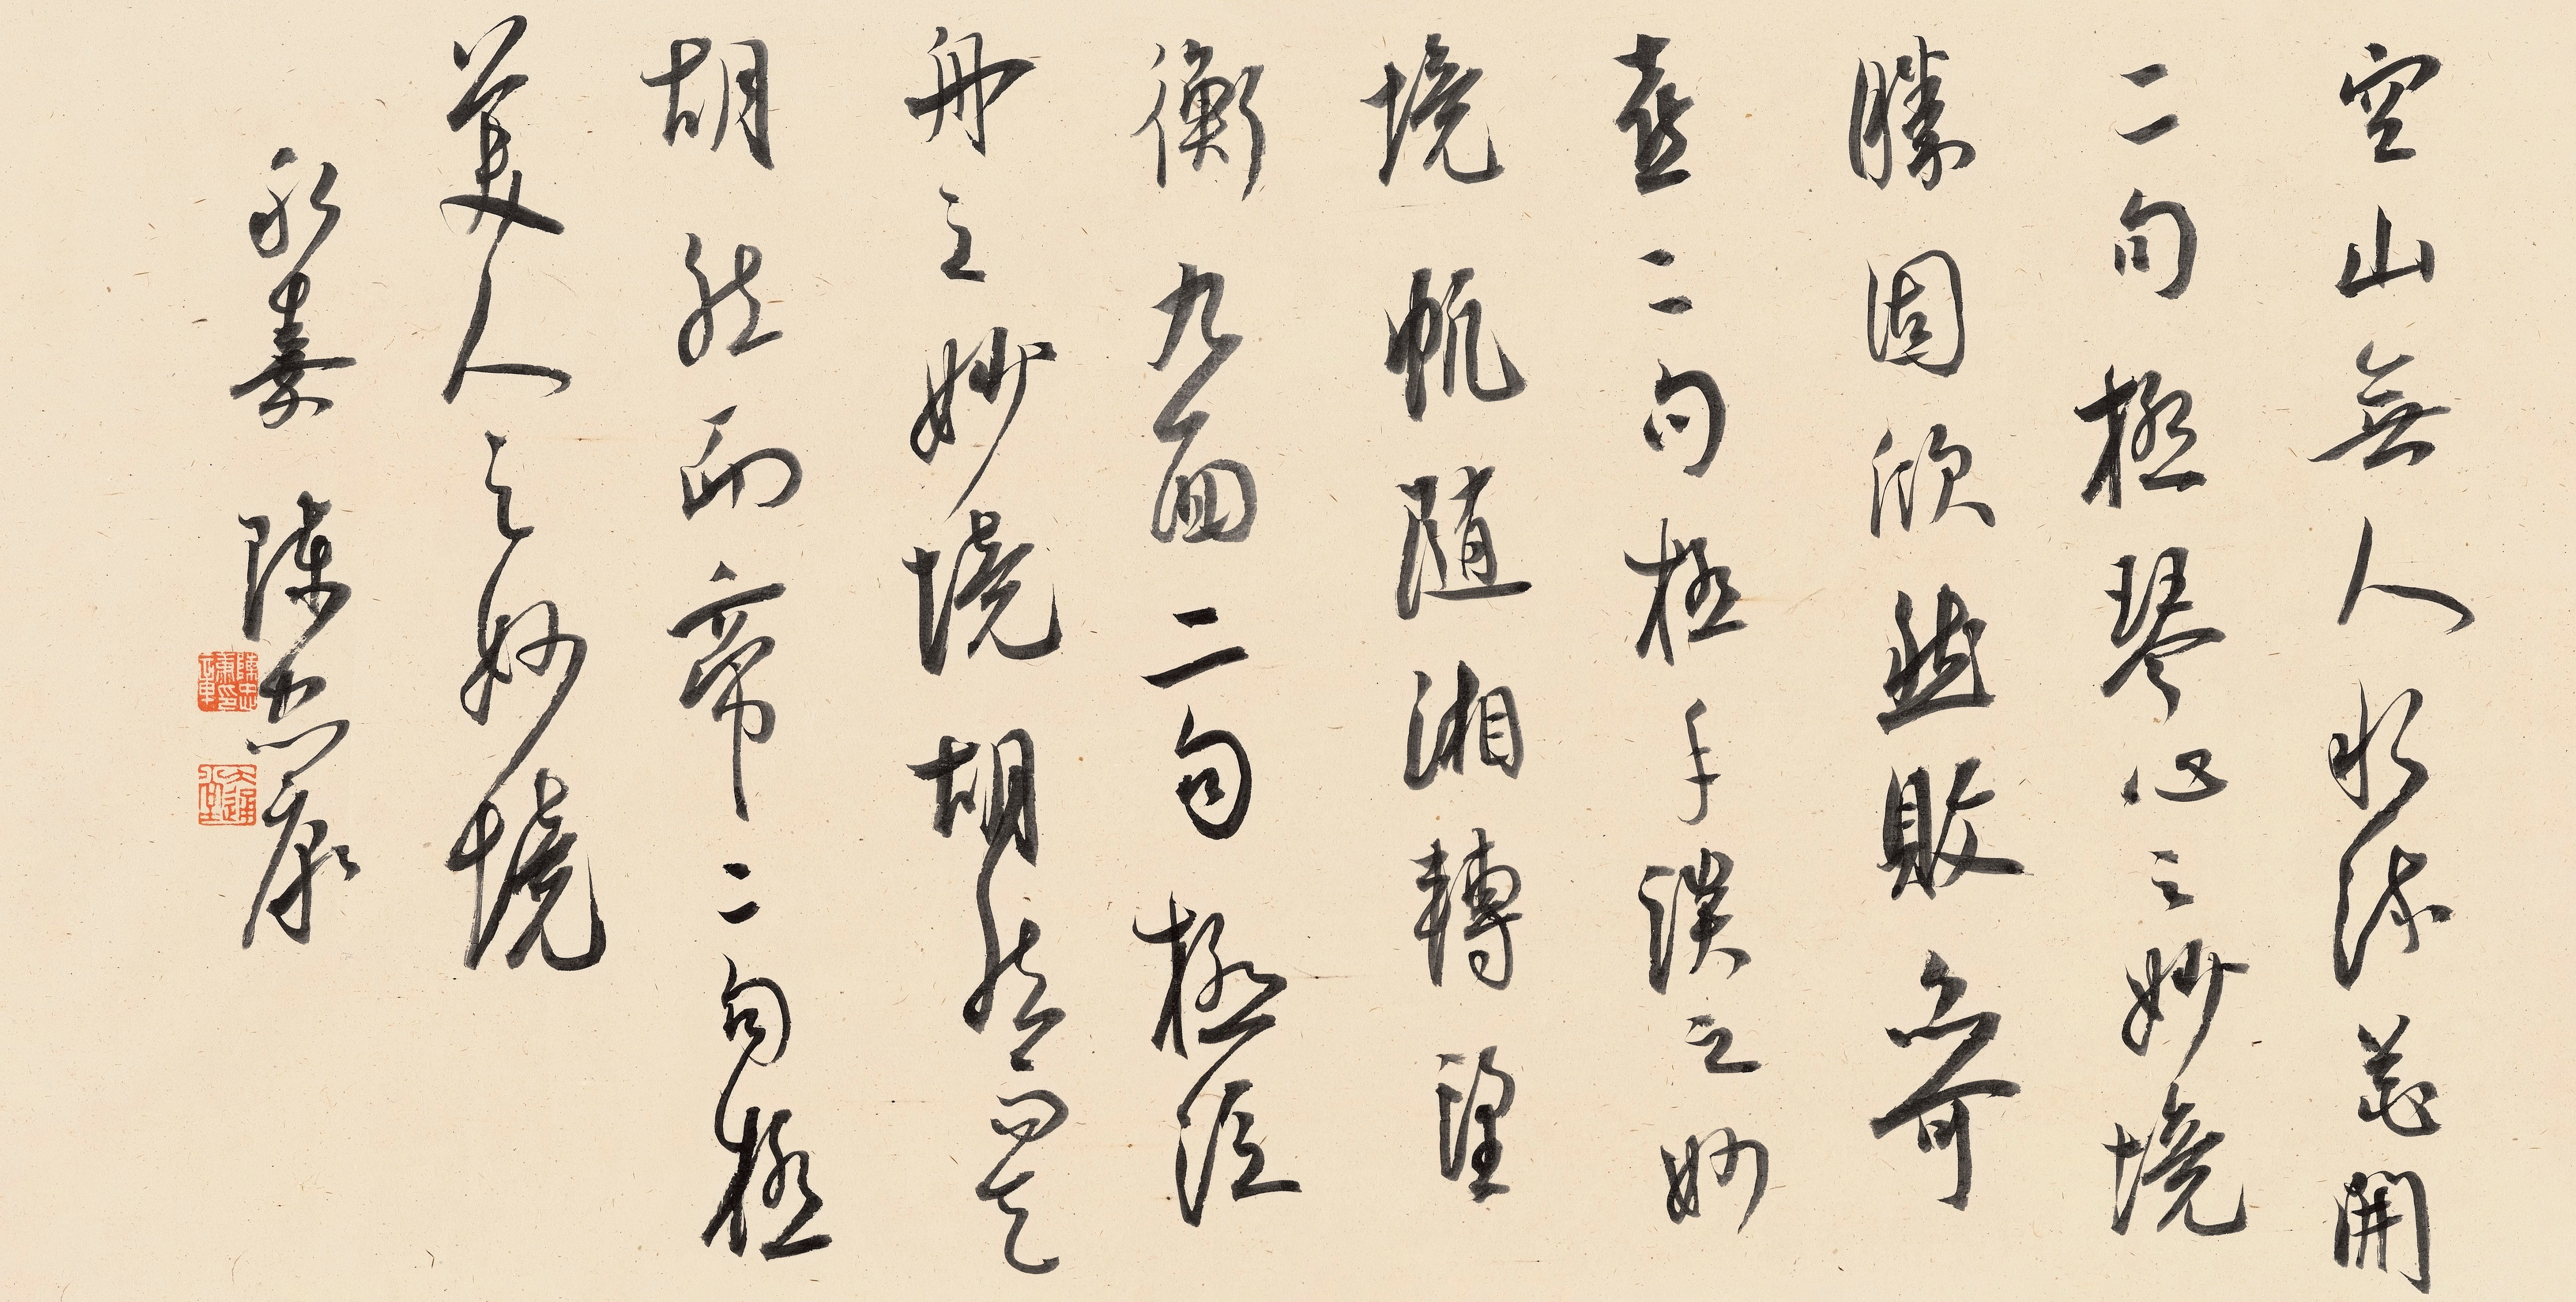 空山無人水流花開
二句極琴心之妙境
勝固欣然敗亦可
喜二句極手談之妙
境帆隨湘轉望
衡九面二句極泛
舟之妙境胡然而天
胡然而帝二句極
美人之妙境
永嘉陳忠康
陳忠康印章